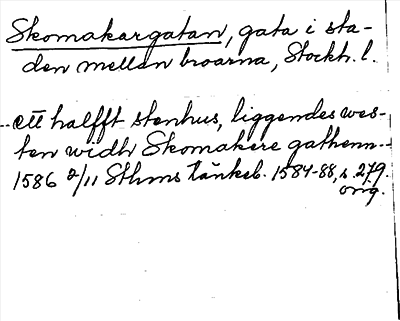 Skomakargatan, gata i sta-
den mellan broarna, Stockh. l.
..ett halfft stenhus, liggendes wes-
ten widh Skomakere gathenn..
1586 2/11 Sthms tänkeb. 1584-88, s. 279.
orig.